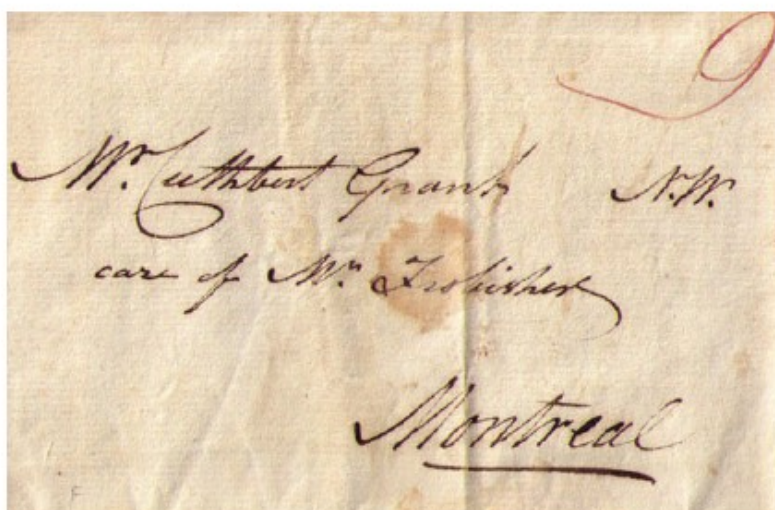 9
Mr. Cuthbert Grant N.W.
care of Mr. Frobisher
Montreal
F